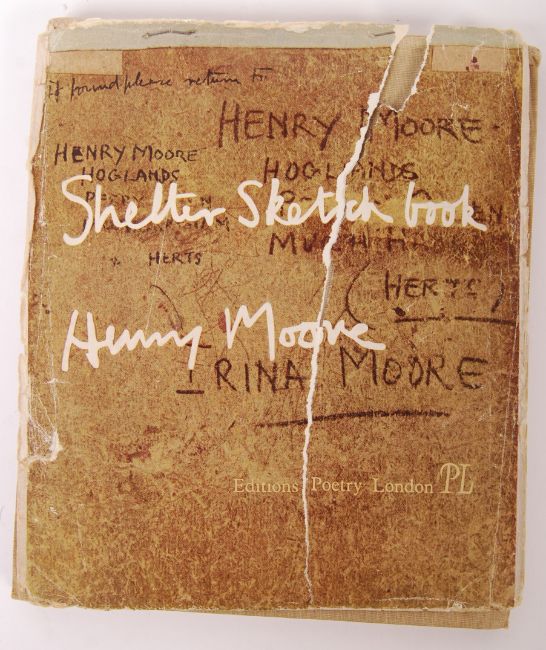 if found please return to
HENRY MOORE
HENRY MOORE
HOGLANDS
HOGLANDS
HERTS
(HERTS)
Shelter Sketch book
Henry Moore
IRINA MOORE
Editions Poetry London PL